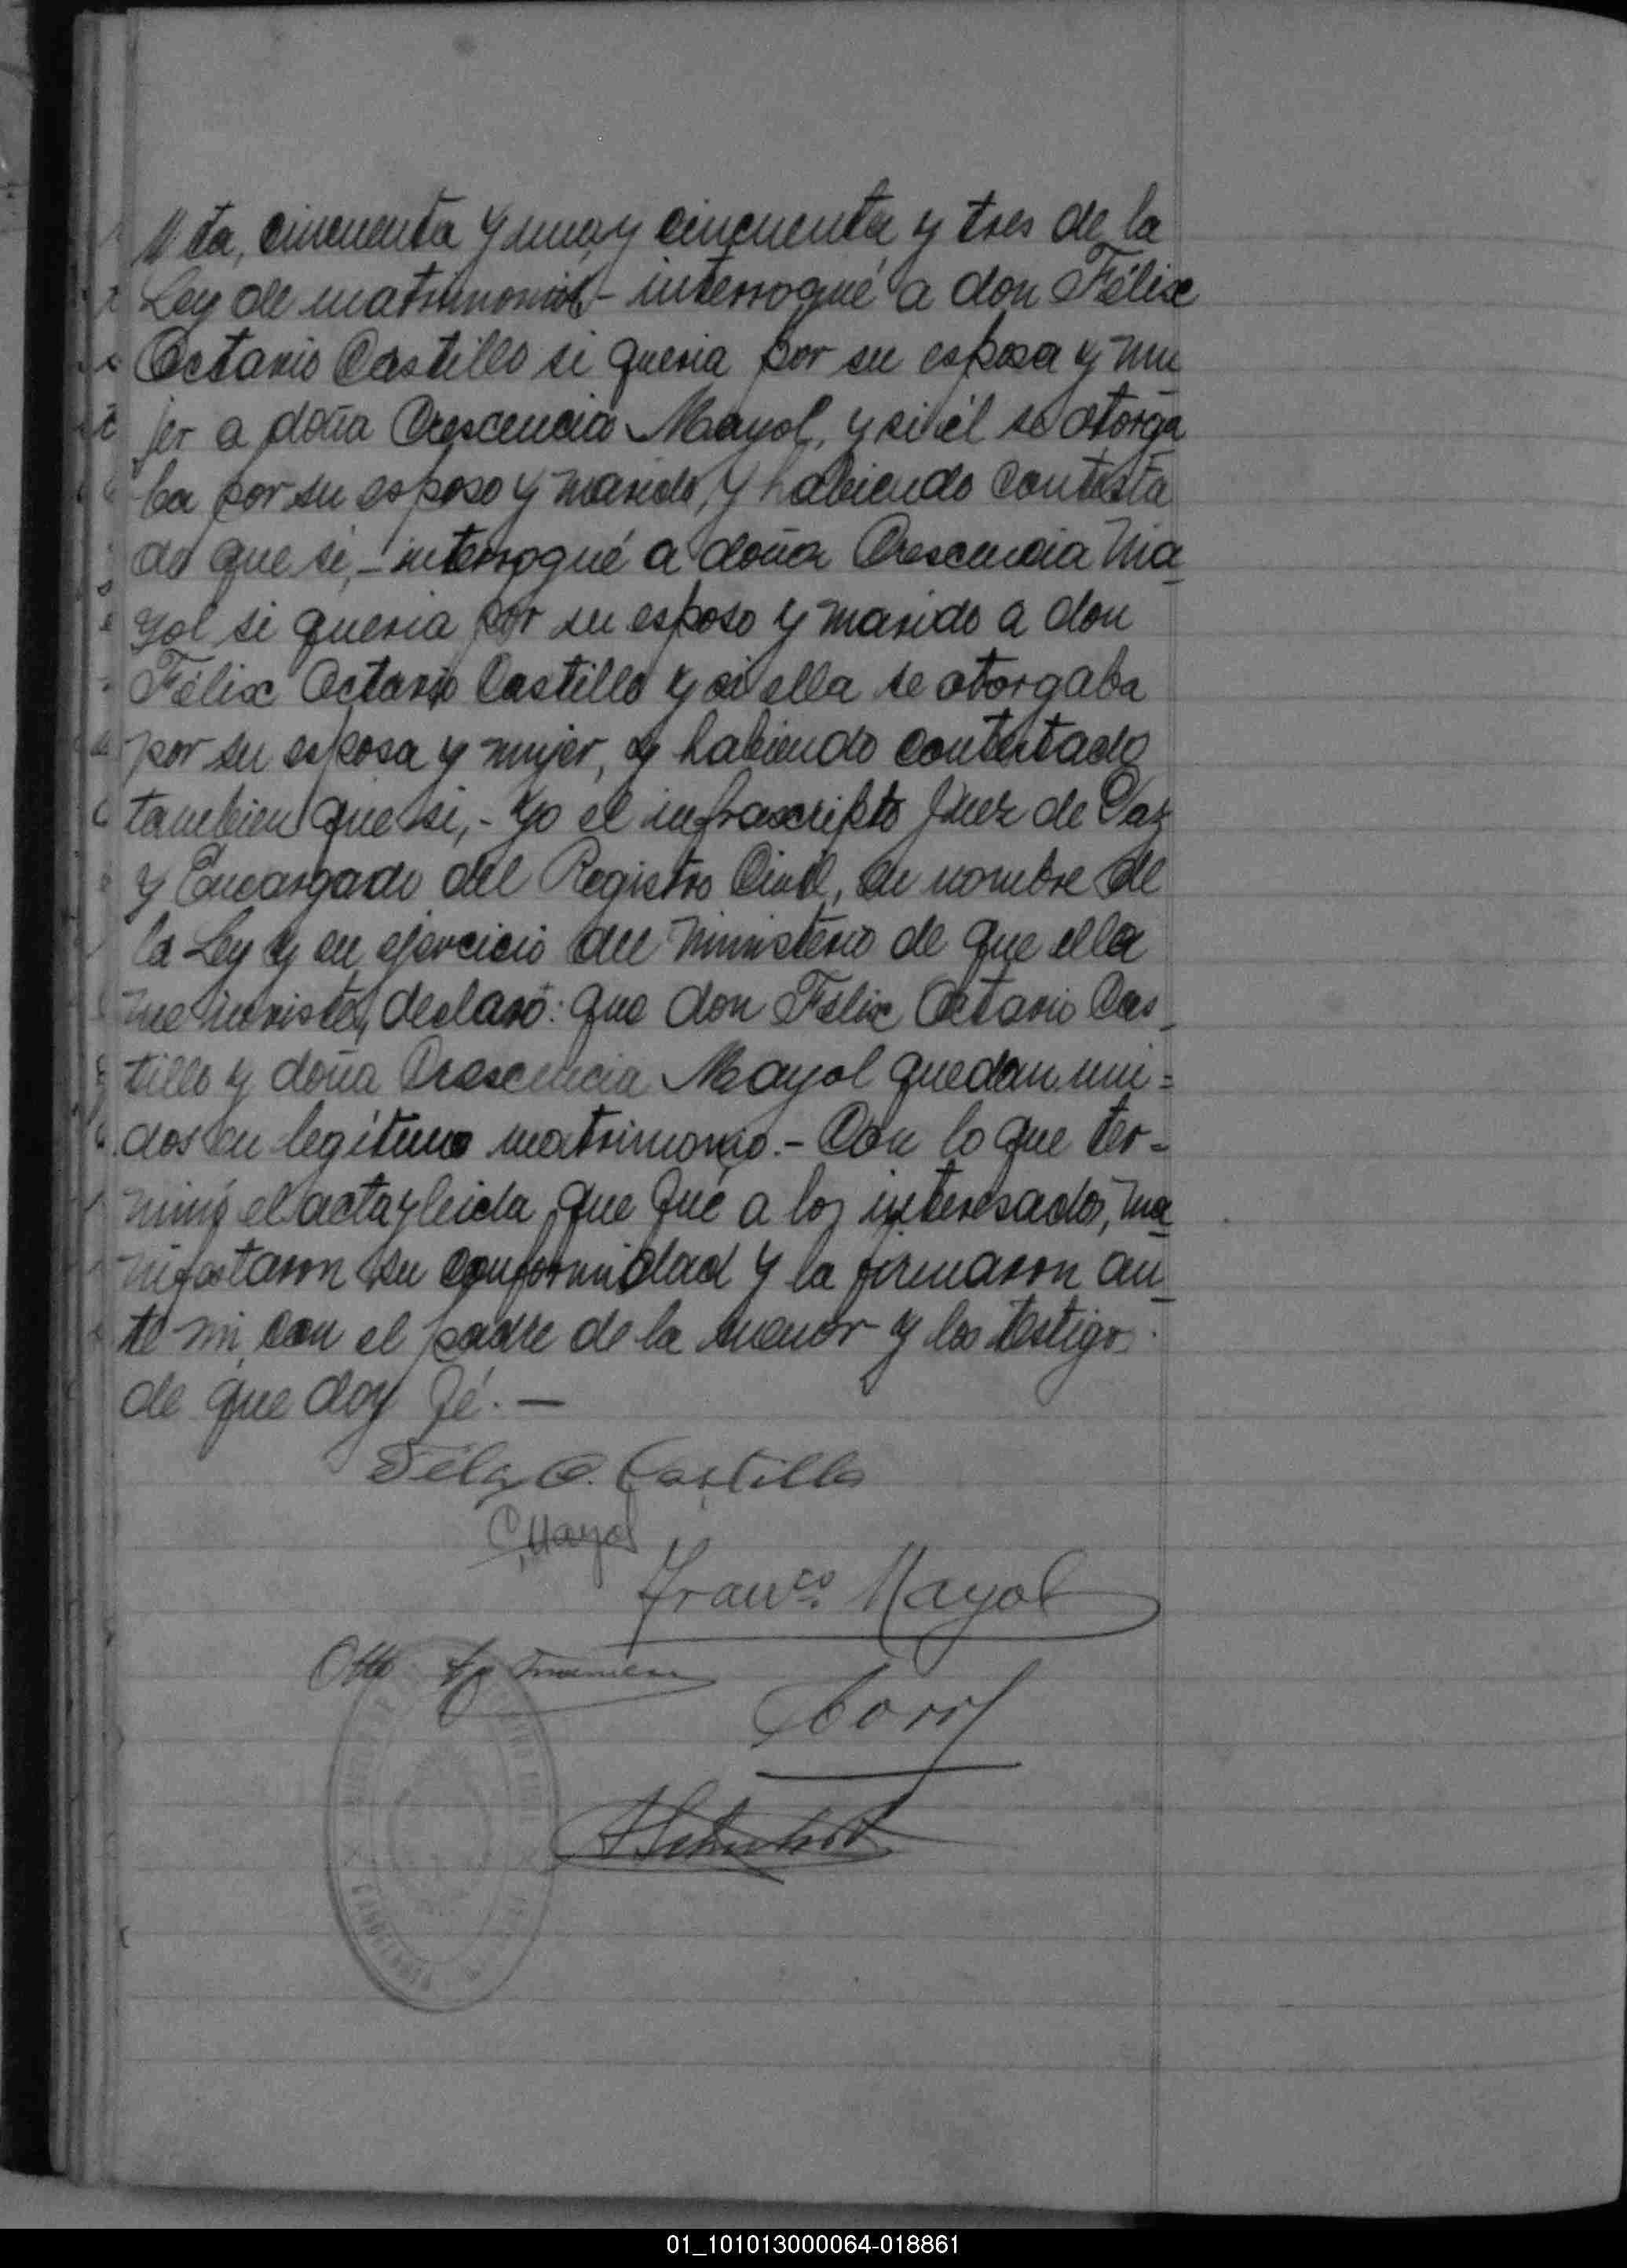 ta, cincuenta y uno, y cincuenta y tres de la
Ley de matrimonio,- interrogué a don Félix
Octavio Castillo si queria por su esposa y mu
jer a doña Crescencia Mayol, y si él se otorga
ba por su esposo y marido, y habiendo contesta
do que si,- interrogué a doña Crescencia Ma_
yol si queria por su esposo y marido a don
Félix Octavio Castillo y si ella se otorgaba
por su esposa y mujer, y habiendo contestado
tambien que si,- Yo el infrascripto Juez de Paz
y Encargado del Registro Civil, en nombre de
la Ley y en ejercicio del ministerio de que ella
me inviste, declaro: que don Félix Octavio Cas_
tillo y doña Crescencia Mayol quedan uni=
dos en legítimo matrimonio.- Con lo que ter=
minó el acta y leida que fué a los interesados, ma_
nifestaron su conformidad y la firmaron an_
te mi con el padre de la menor y los testigos
de que doy fé.-
Félix O. Castillo
C. Mayol
Franco. Mayol
Otto
REGISTRO CIVIL
01_101013000064-018861